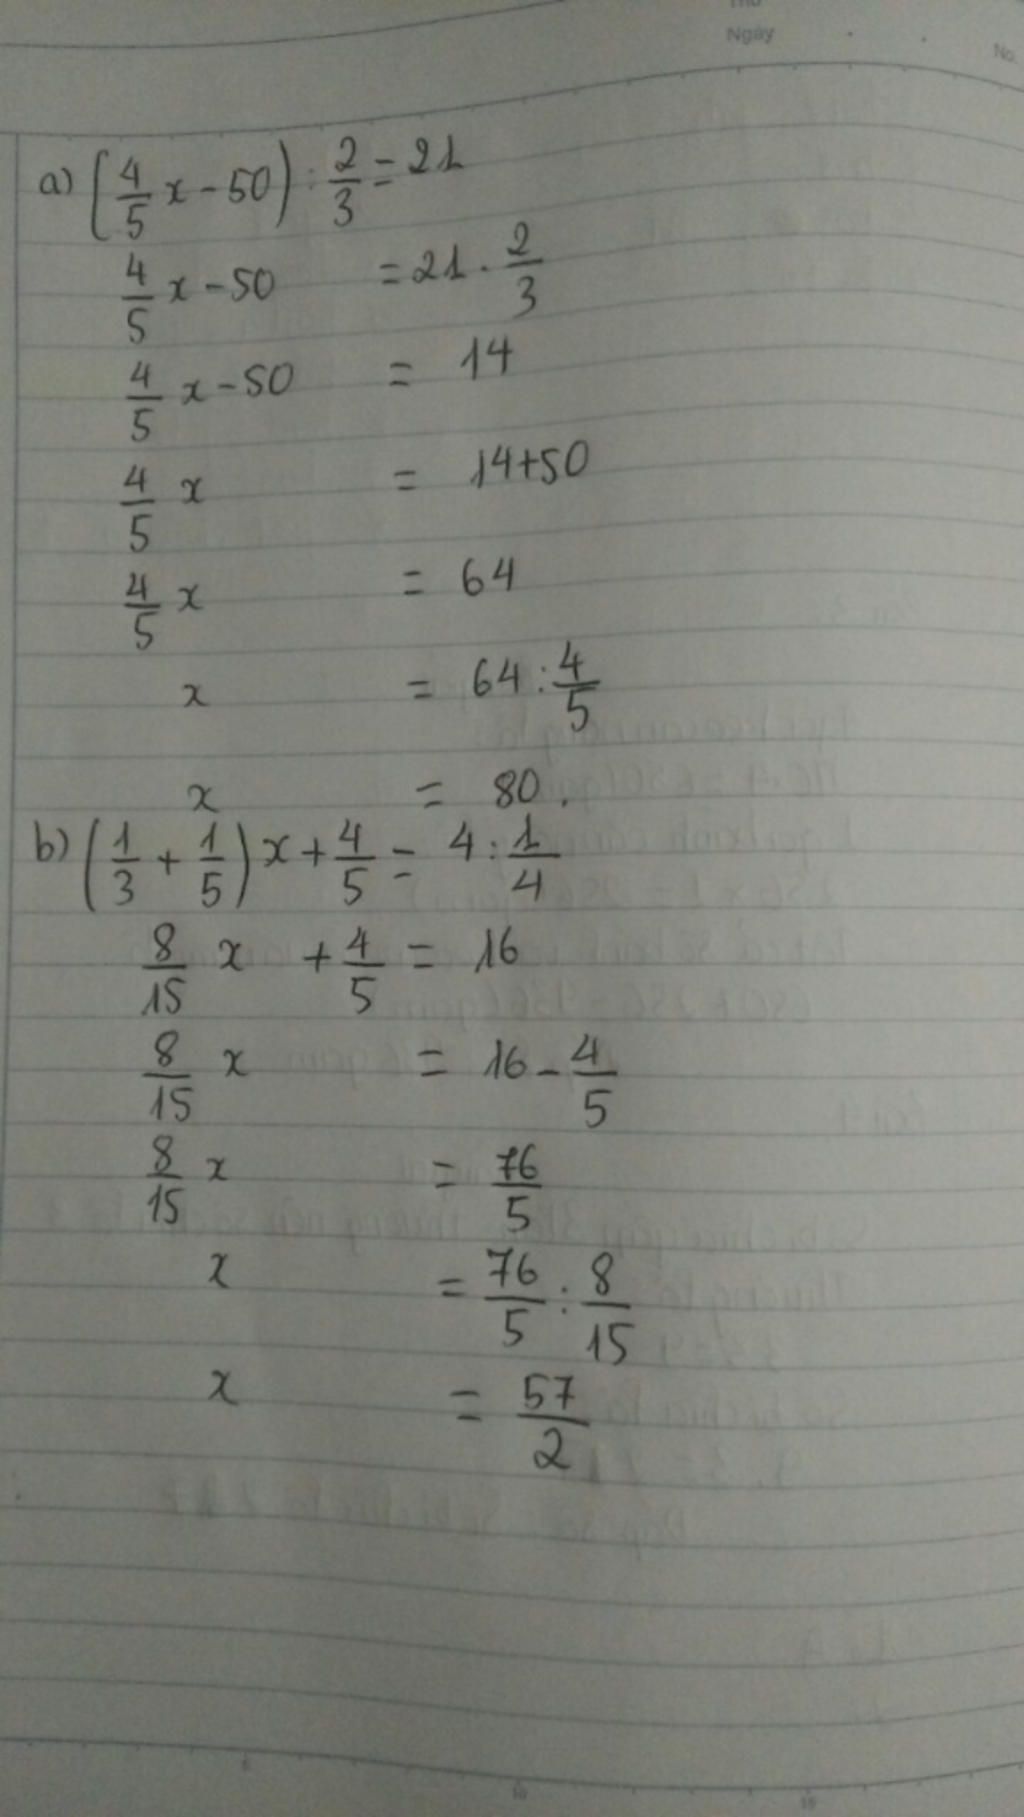 Thứ
Ngày
No.
a) (4/5 x - 50) : 2/3 = 21
4/5 x - 50 = 21 . 2/3
4/5 x - 50 = 14
4/5 x = 14+50
4/5 x = 64
x = 64 : 4/5
x = 80.
b) (1/3 + 1/5) x + 4/5 = 4 : 1/4
8/15 x + 4/5 = 16
8/15 x = 16 - 4/5
8/15 x = 76/5
x = 76/5 : 8/15
x = 57/2
5
10
15